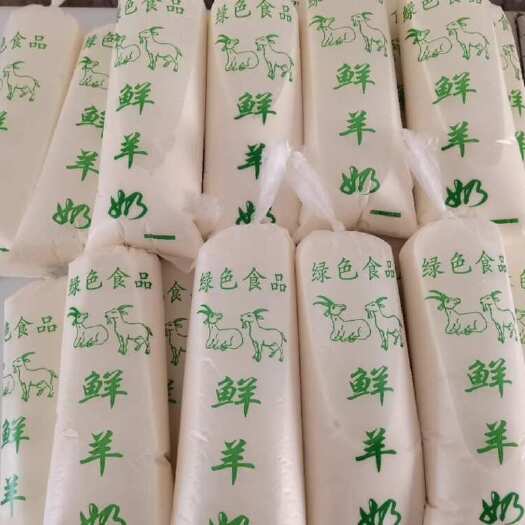 绿色食品
鲜羊奶
绿色食品
鲜羊奶
绿色食品
鲜羊奶
绿色食品
鲜羊奶
绿色食品
鲜羊奶
绿色食品
鲜羊奶
绿色食品
鲜羊奶
绿色食品
鲜羊奶
绿色食品
鲜羊
绿色食品
鲜羊奶